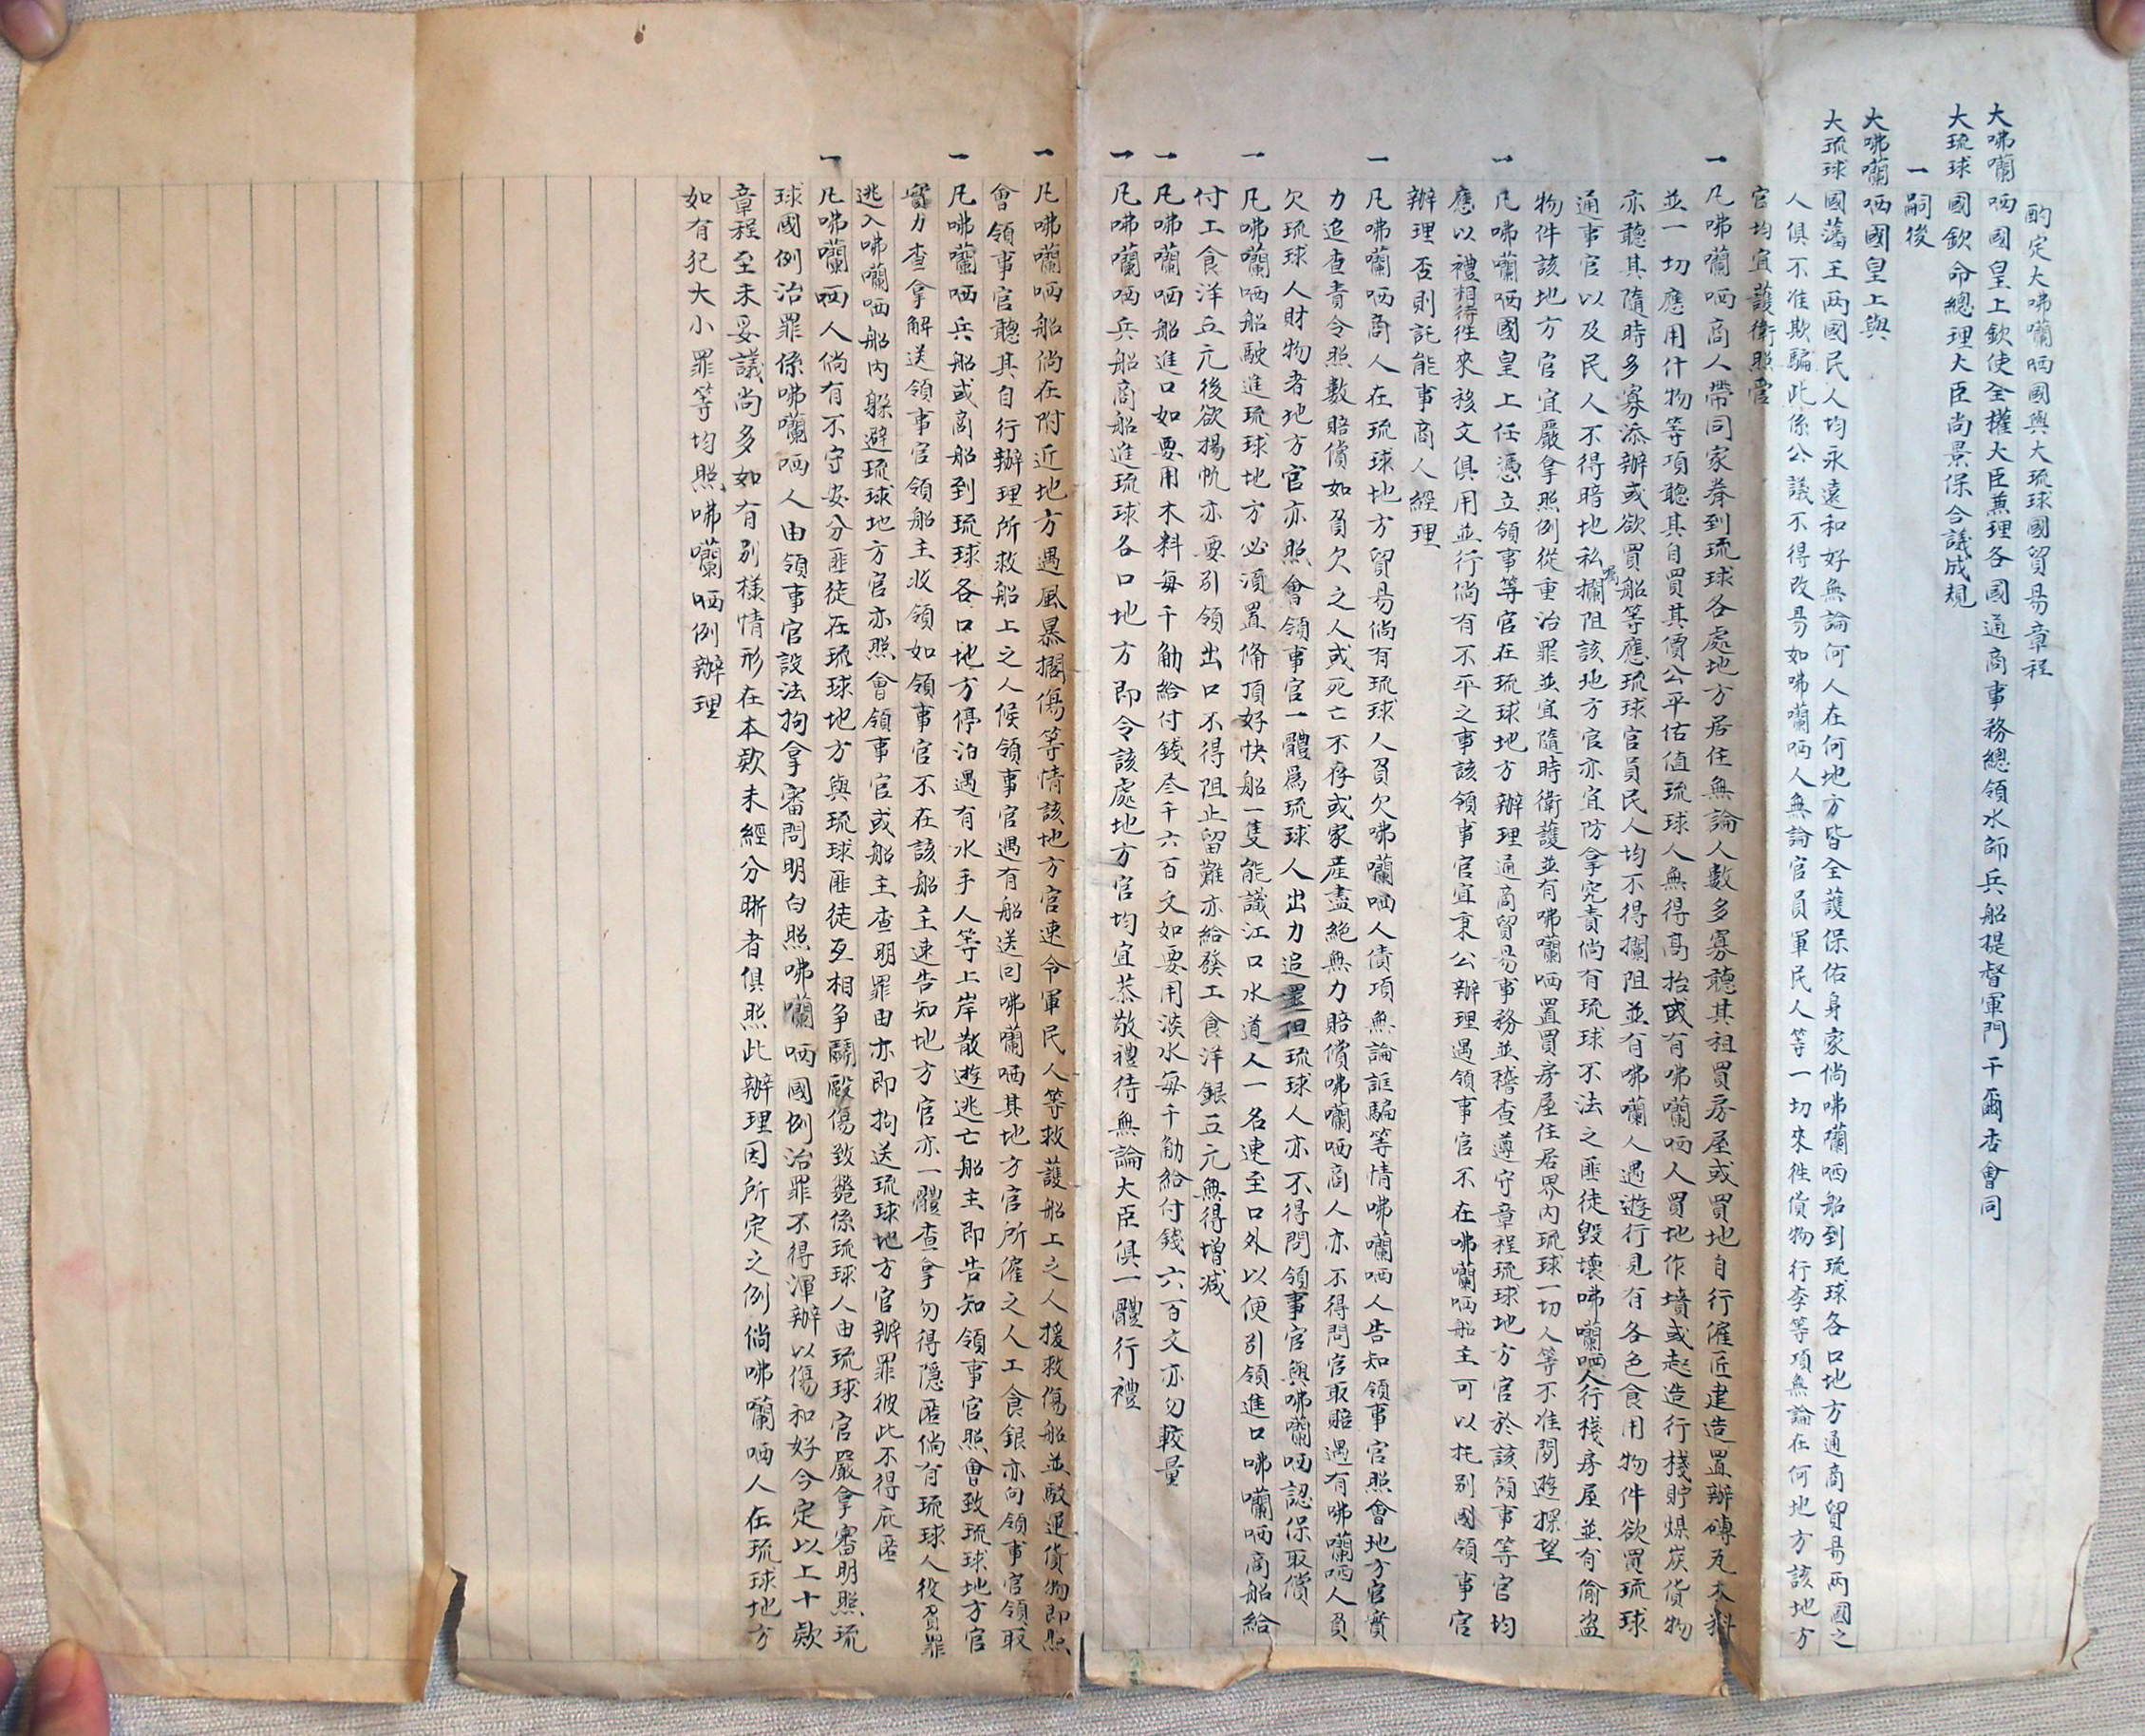 酌定大咈囒哂國與大琉球國貿易章程
大咈囒哂國皇上欽使全權大臣兼理各國通商事務總領水師兵船提督軍門干爾杏會同
大琉球國欽命總理大臣尚景保合議成規
一嗣後
大咈囒哂國皇上與
大琉球國藩王两國民人均永遠和好無論何人在何地方皆全護保佑身家倘咈囒哂船到琉球各口地方通商貿易两國之
人俱不准欺騙此係公議不得改易如咈囒哂人無論官員軍民人等一切來往貨物行李等項無論在何地方該地方
官均宜護衛照管
一凡咈囒哂商人帶同家眷到琉球各處地方居住無論人數多寡聽其租買房屋或買地自行僱匠建造置辦磚瓦木料
並一切應用什物等項聽其自買其價公平估值琉球人無得高抬或有咈囒哂人買地作墳或起造行棧貯煤炭貨物
亦聽其隨時多寡添辦或欲買船等應琉球官員民人均不得攔阻並有咈囒人遇遊行見有各色食用物件欲買琉球
通事官以及民人不得暗地私囑攔阻該地方官亦宜防拿究責倘有琉球不法之匪徒毀壞咈囒哂人行棧房屋並有偷盗
物件該地方官宜嚴拿照例從重治罪並宜隨時衛護並有咈囒哂置買房屋住居界內琉球一切人等不准閒遊探望
一凡咈囒哂國皇上任憑立領事等官在琉球地方辦理通商貿易事務並稽查遵守章程琉球地方官於該領事等官均
應以禮相待往來移文俱用並行倘有不平之事該領事官宜秉公辦理遇領事官不在咈囒哂船主可以托别國領事官
辦理否則託能事商人經理
一凡咈囒哂商人在琉球地方貿易倘有琉球人負欠咈囒哂人債項無論誆騙等情咈囒哂人告知領事官照會地方官實
力追查責令照數賠償如負欠之人或死亡不存或家産盡絶無力賠償咈囒哂商人亦不得問官取賠遇有咈囒哂人負
欠琉球人財物者地方官亦照會領事官一體爲琉球人出力追還但琉球人亦不得問領事官與咈囒哂認保取償
一凡咈囒哂船駛進琉球地方必須置備頂好快船一隻能識江口水道人一名速至口外以便引領進口咈囒哂商船給
付工食洋五元後欲揚帆亦要引領出口不得阻止留難亦給發工食洋銀五元無得增减
一凡咈囒哂船進口如要用木料每千觔給付錢叁千六百文如要用淡水每千觔給付錢六百文亦勿較量
一凡咈囒哂兵船商船進琉球各口地方即令該處地方官均宜恭敬禮待無論大臣俱一體行禮
一凡咈囒哂船倘在附近地方遇風暴擱傷等情該地方官速令軍民人等救護船上之人援救傷船並駁運貨物即照
會領事官聽其自行辦理所救船上之人候領事官遇有船送回咈囒哂其地方官所僱之人工食銀亦向領事官領取
一凡咈囒哂兵船或商船到琉球各口地方停泊遇有水手人等上岸散遊逃亡船主即告知領事官照會致琉球地方官
實力查拿解送領事官領船主收領如領事官不在該船主速告知地方官亦一體查拿勿得隱匿倘有琉球人役負罪
逃入咈囒哂船內躲避琉球地方官亦照會領事官或船主查明罪由亦即拘送琉球地方官辦罪彼此不得庇匿
一凡咈囒哂人倘有不守安分匪徒在琉球地方與琉球匪徒互相争鬭毆傷致斃係琉球人由琉球官嚴拿審明照琉
球國例治罪係咈囒哂人由領事官設法拘拿審問明白照咈囒哂國例治罪不得渾辦以傷和好今定以上十欵
章程至未妥議尚多如有别樣情形在本欵未經分晰者俱照此辦理因所定之例倘咈囒哂人在琉球地方
如有犯大小罪等均照咈囒哂例辦理